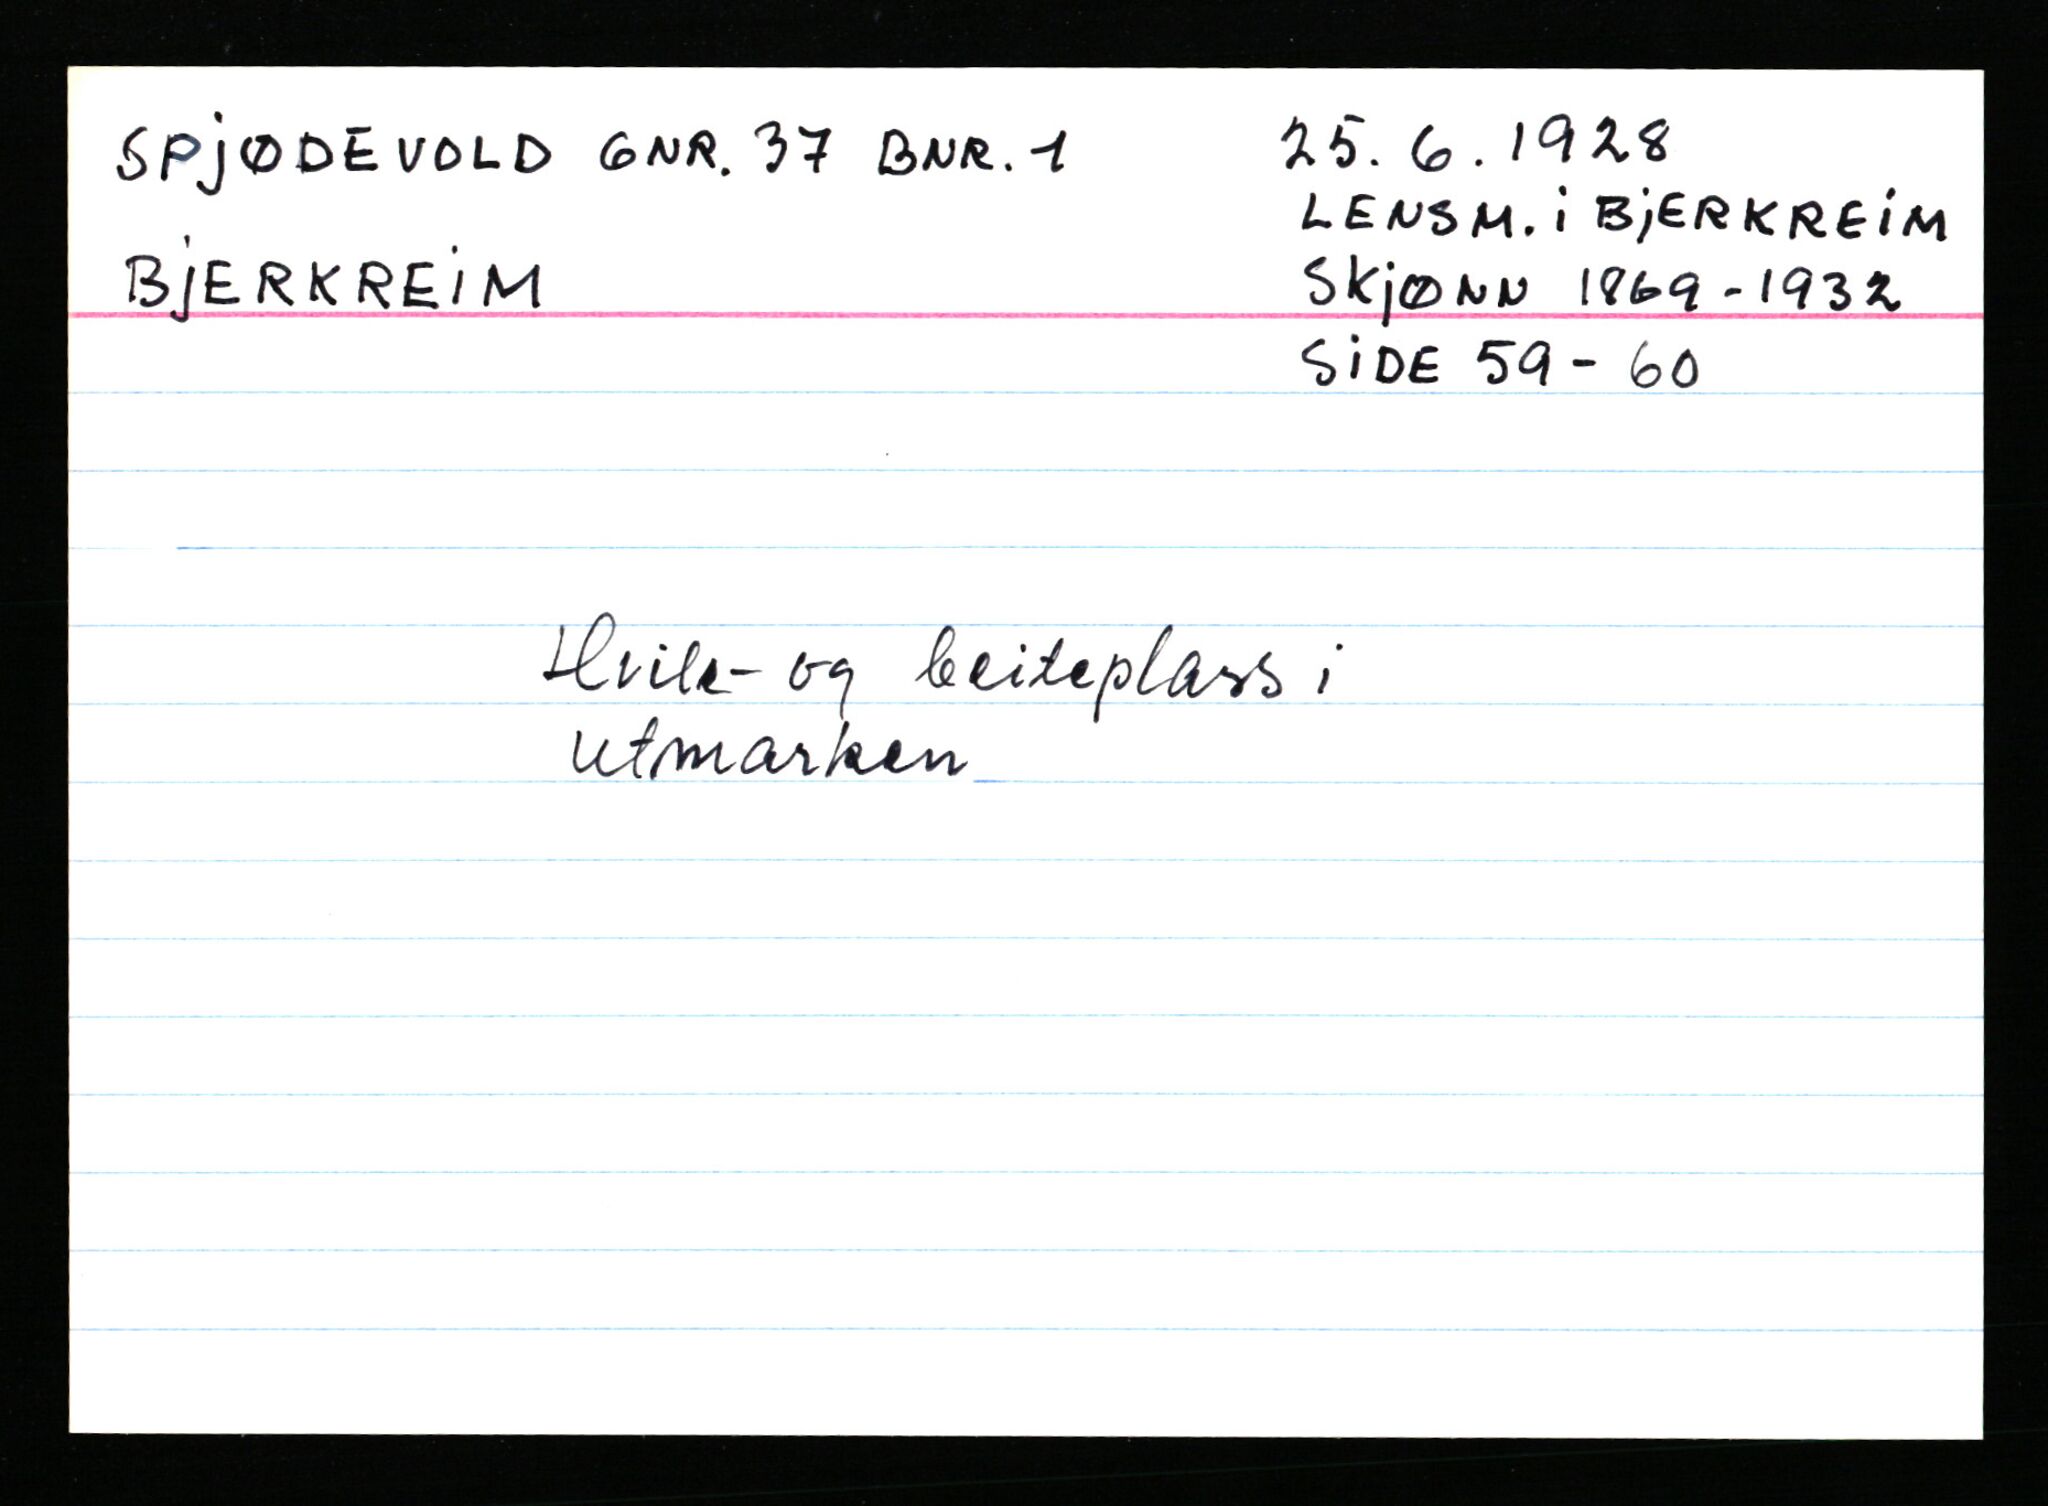 SPJØDEVOLD GNR. 37 BNR. 1
BJERKREIM
25. 6. 1928
LENSM. i BJERKREIM
SKJØNN 1869-1932
SIDE 59-60
Hvile- og beiteplass i
utmarken